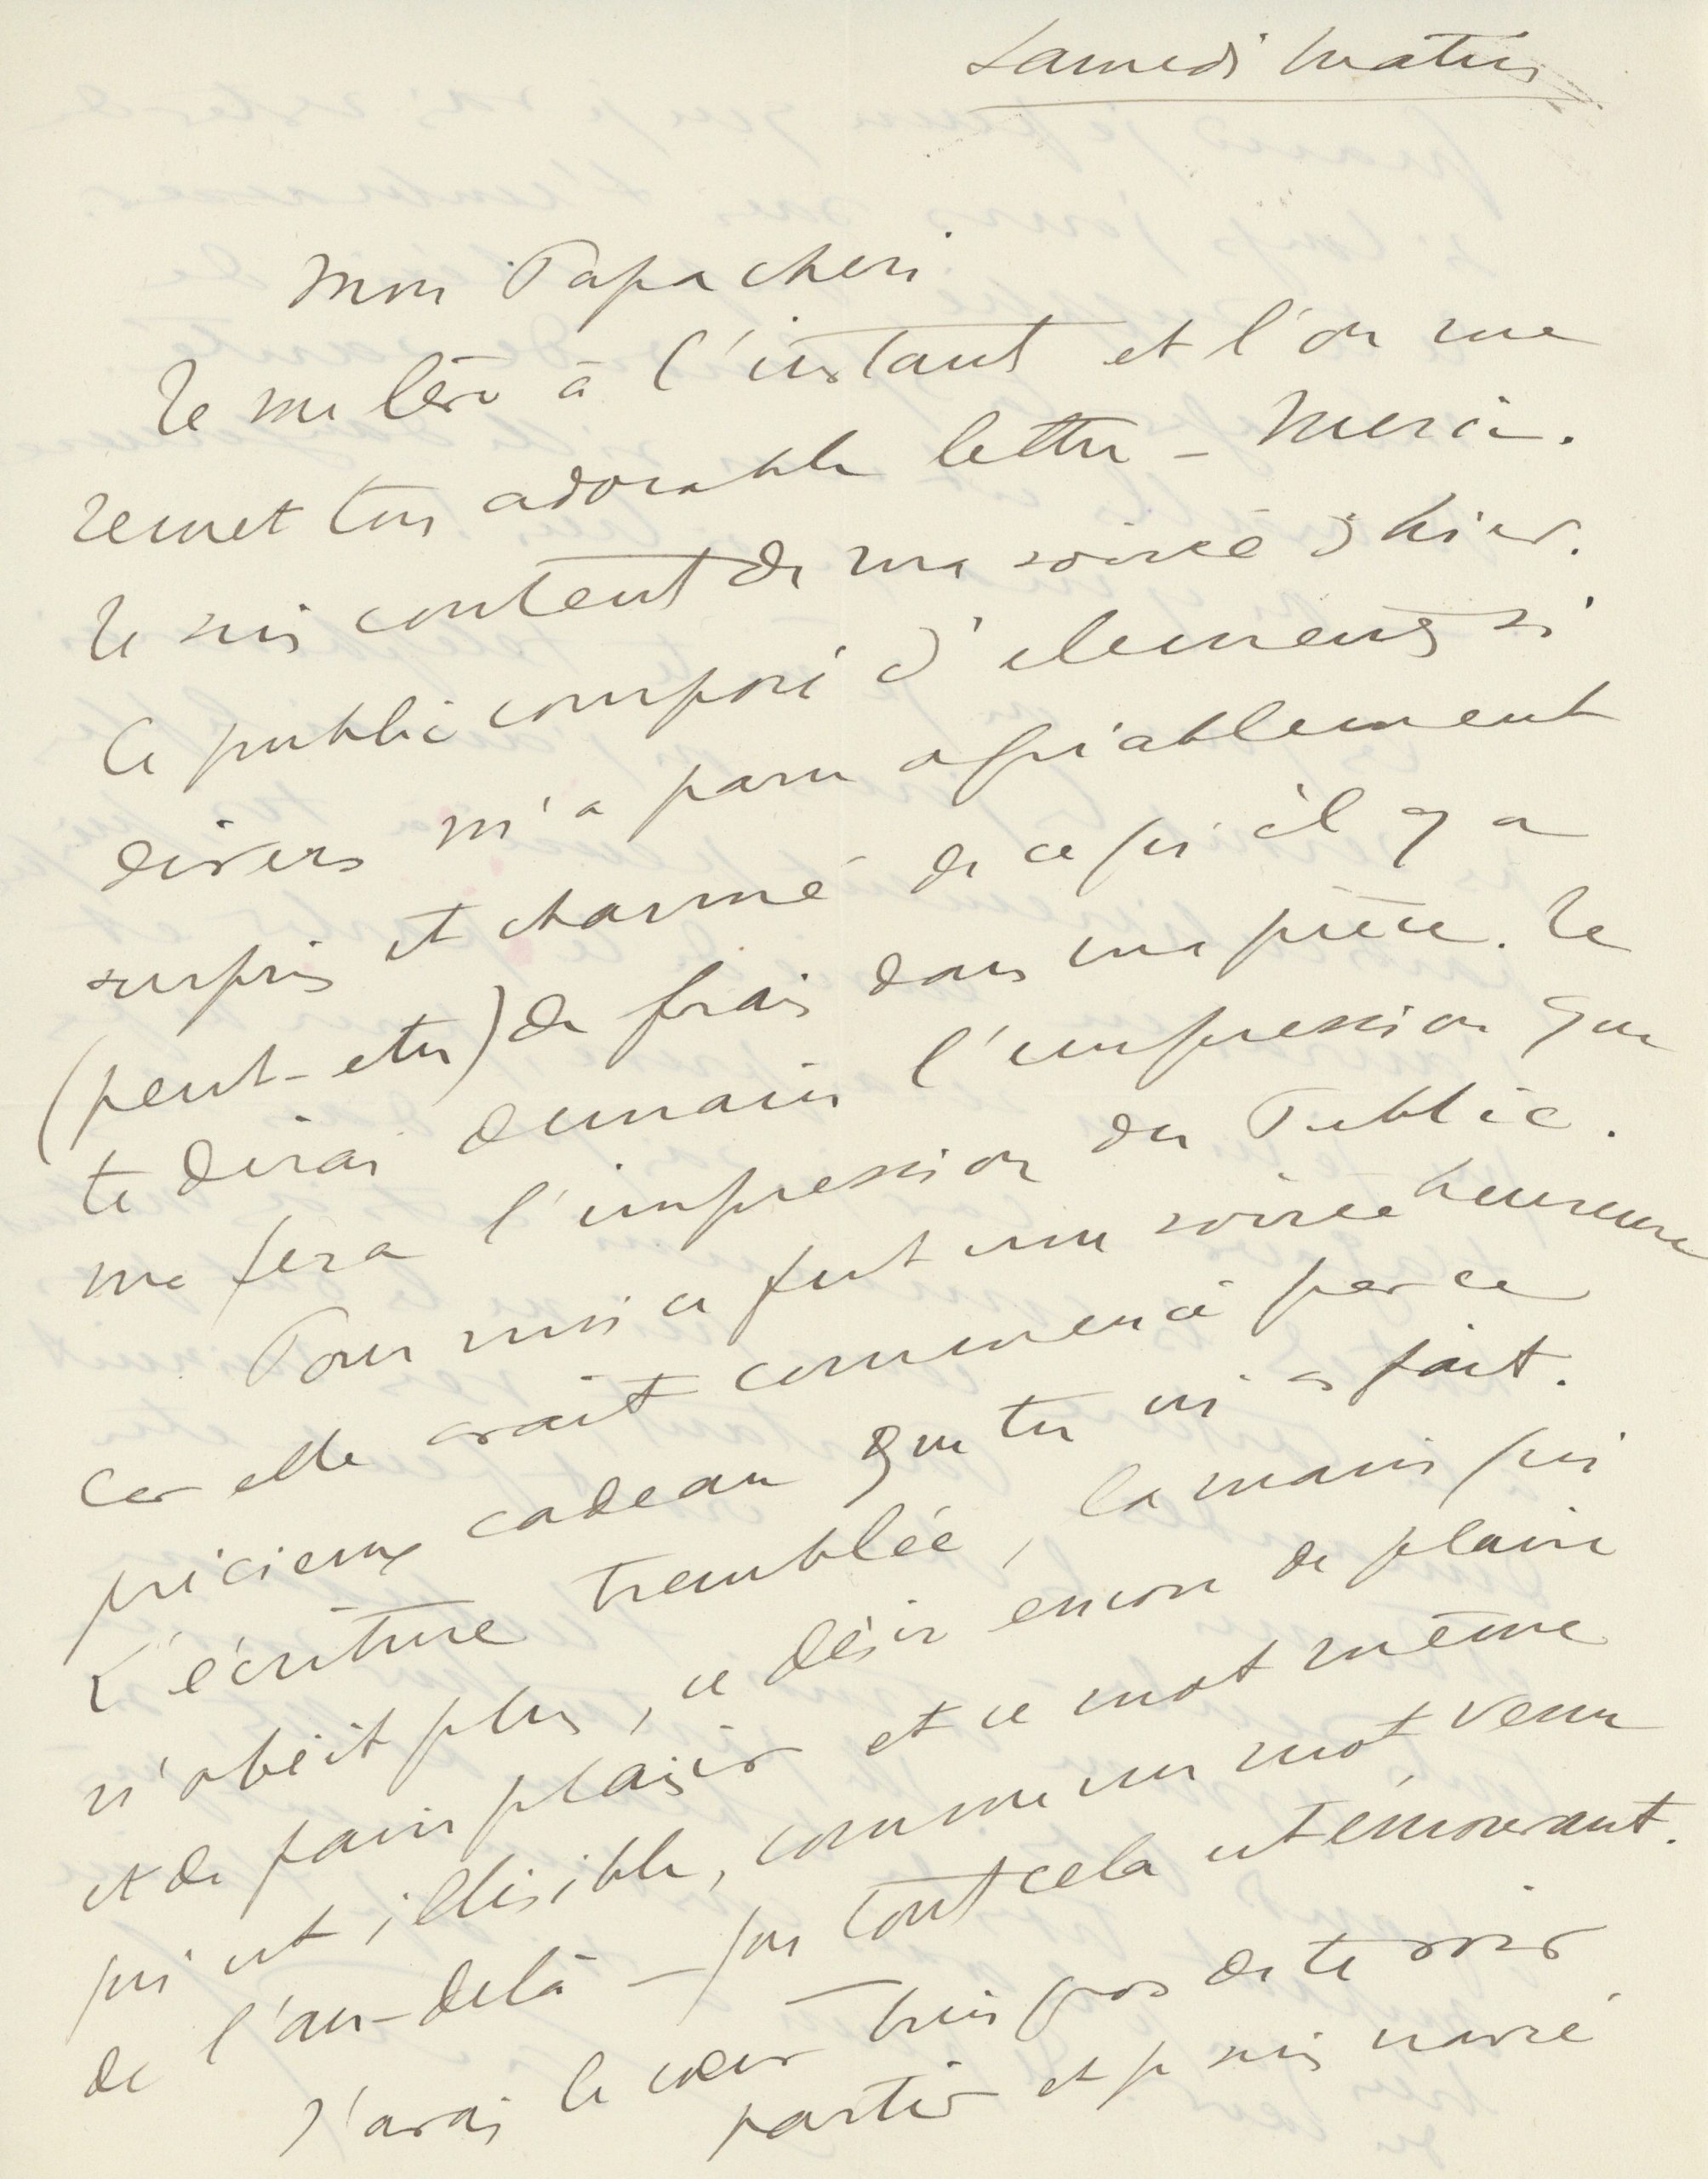 Samedi matin
Mon Papa cheri
Je me lève à l'instant et l'on me
remet ton adorable lettre – Merci.
Je suis content de ma soirée d'hier.
Ce public composé d'elements si
divers m'a paru agréablement
surpris et charmé de ce qu'il y a
(peut-etre) de frais dans ma pièce. Je
te dirai demain l'impression que
me fera l'impression du Public.
Pour moi ce fut une soirée heureuse
car elle avait commencé par ce
précieux cadeau que tu m'as fait.
L'écriture tremblée, la main qui
n'obéit plus, ce désir encore de plaire
et de faire plaisir et ce mot même
qui est illisible, comme un mot venu
de l'au-delà – que tout cela est émouvant.
J'avais le cœur bien gros de te voir
partir et je suis navré